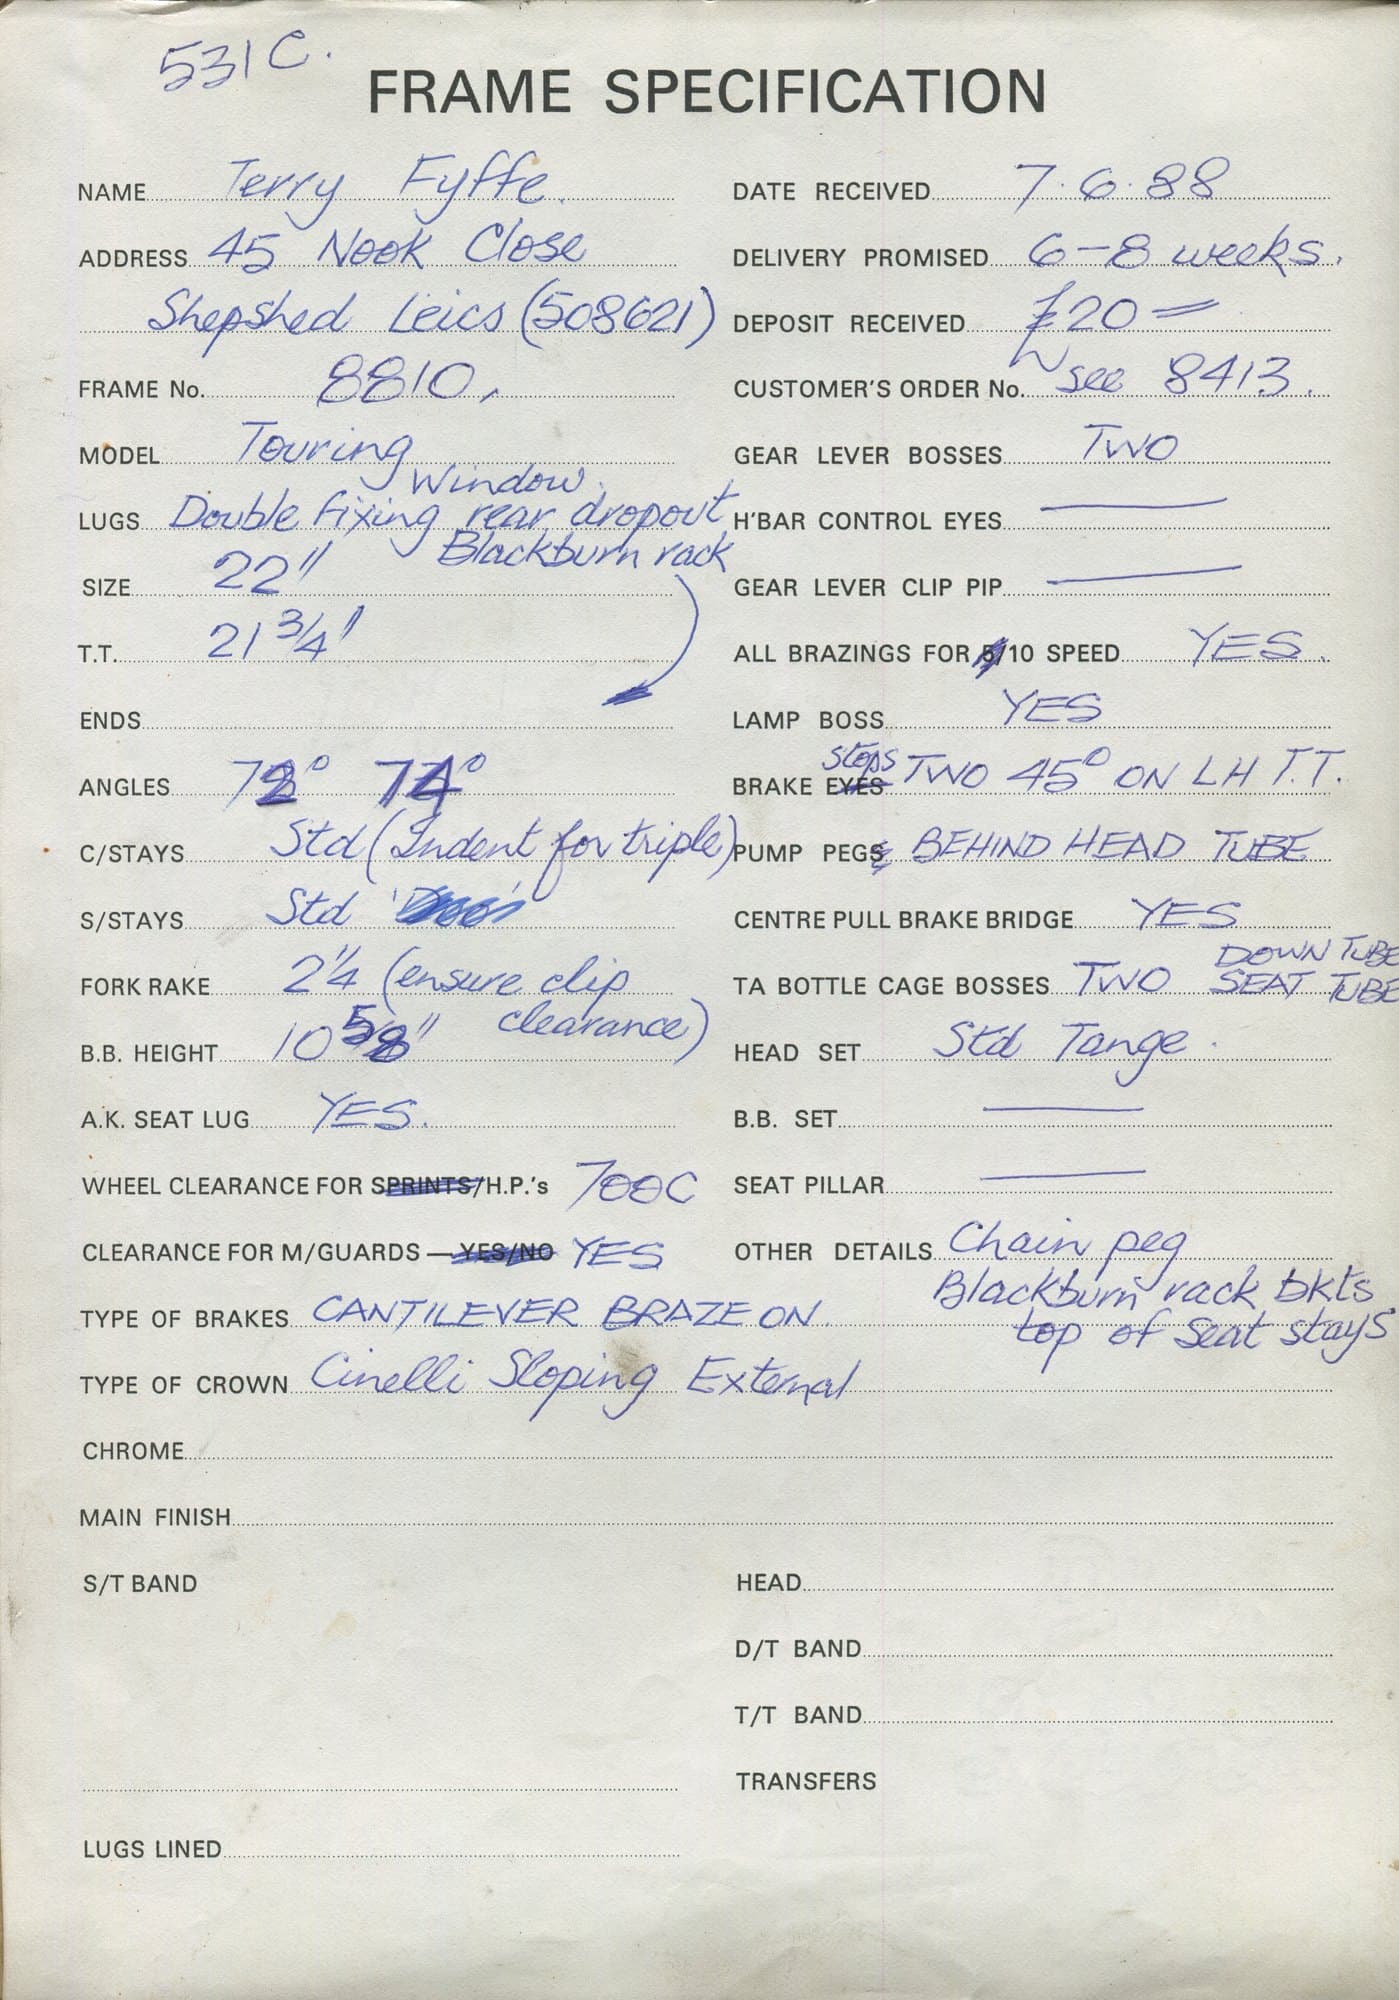 531 C.
FRAME SPECIFICATION
NAME Terry Fyffe.
ADDRESS 45 Nook Close
Shepshed Leics (508621)
FRAME No. 8810,
MODEL Touring
Window.
LUGS Double fixing rear dropout
Blackburn rack
SIZE 22"
T.T. 21 3/4"
ENDS
ANGLES 72° 74°
C/STAYS Std (Indent for triple)
S/STAYS Std
FORK RAKE 2 1/4 (ensure clip
clearance)
B.B. HEIGHT 10 5/8"
A.K. SEAT LUG YES.
WHEEL CLEARANCE FOR SPRINTS/H.P.'s 700C
CLEARANCE FOR M/GUARDS — YES/NO YES
TYPE OF BRAKES CANTILEVER BRAZE ON.
TYPE OF CROWN Cinelli Sloping External
CHROME
MAIN FINISH
S/T BAND
LUGS LINED
DATE RECEIVED 7.6.88
DELIVERY PROMISED 6-8 weeks.
DEPOSIT RECEIVED £20=
CUSTOMER'S ORDER No. see 8413.
GEAR LEVER BOSSES TWO
H'BAR CONTROL EYES —
GEAR LEVER CLIP PIP —
ALL BRAZINGS FOR 5/10 SPEED YES.
LAMP BOSS YES
stops
BRAKE EYES TWO 45° ON LH T.T.
PUMP PEGS BEHIND HEAD TUBE
CENTRE PULL BRAKE BRIDGE YES
DOWN TUBE
TA BOTTLE CAGE BOSSES TWO SEAT TUBE
HEAD SET Std Tange.
B.B. SET —
SEAT PILLAR —
OTHER DETAILS Chain peg
Blackburn rack bkts
top of seat stays
HEAD
D/T BAND
T/T BAND
TRANSFERS